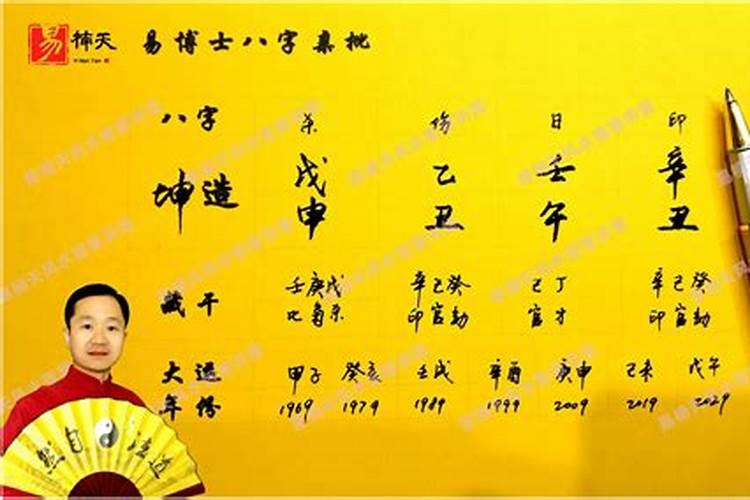 易 楠天 易博士八字集批
八字 杀 伤 日 印
坤造 戊 乙 壬 辛
申 丑 午 丑
藏干 壬庚戊 辛己癸 己丁 辛己癸
比枭杀 印官劫 官才 印官劫
大运 甲子 癸亥 壬戌 辛酉 庚申 己未 戊午
年份 1969 1979 1989 1999 2009 2019 2029
道法自然